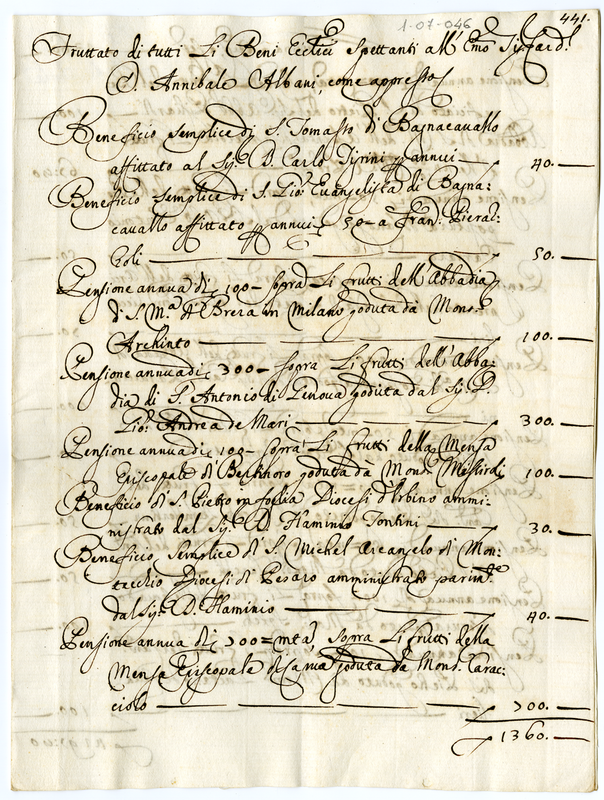 441.
1-07-046
Fruttato di tutti Li Beni Ecctici spettanti all' Emo Sig. Card.l
D. Annibale Albani, come appresso
Beneficio semplice di S. Tomasso di Bagnacavallo
affittato al Sig. D. Carlo annui — 40. —
Beneficio semplice di S. Gio: Evangelista di Bagna:
cavallo affittato annui 50 - a Fran. Pieral:
— 50. —
Pensione annua di 100 - sopra Li frutti dell' Abbadia
di S. M.a di Brera in Milano goduta da Mons.
Archinto — 100. —
Pensione annua di 300 - sopra Li frutti dell' Abba
dia di S. Antonio di Genova goduta dal Sig. D.
Gio: Andrea de Mari — 300. —
Pensione annua di 100 - sopra Li frutti della Mensa
Episcopale di goduta da Mons. 100. —
Beneficio di S. Pietro in foglia Diocesi d'Urbino ammi:
nistrato dal Sig. D. Flaminio — 30. —
Beneficio semplice di S. Michel Arcangelo di Mon:
tecchio Diocesi di Pesaro amministrato parim.te
dal Sig. D. Flaminio — 40. —
Pensione annua di 700 = mta, sopra Li frutti della
Mensa Episcopale goduta da Mons. Carac:
ciolo — 700. —
1360. —